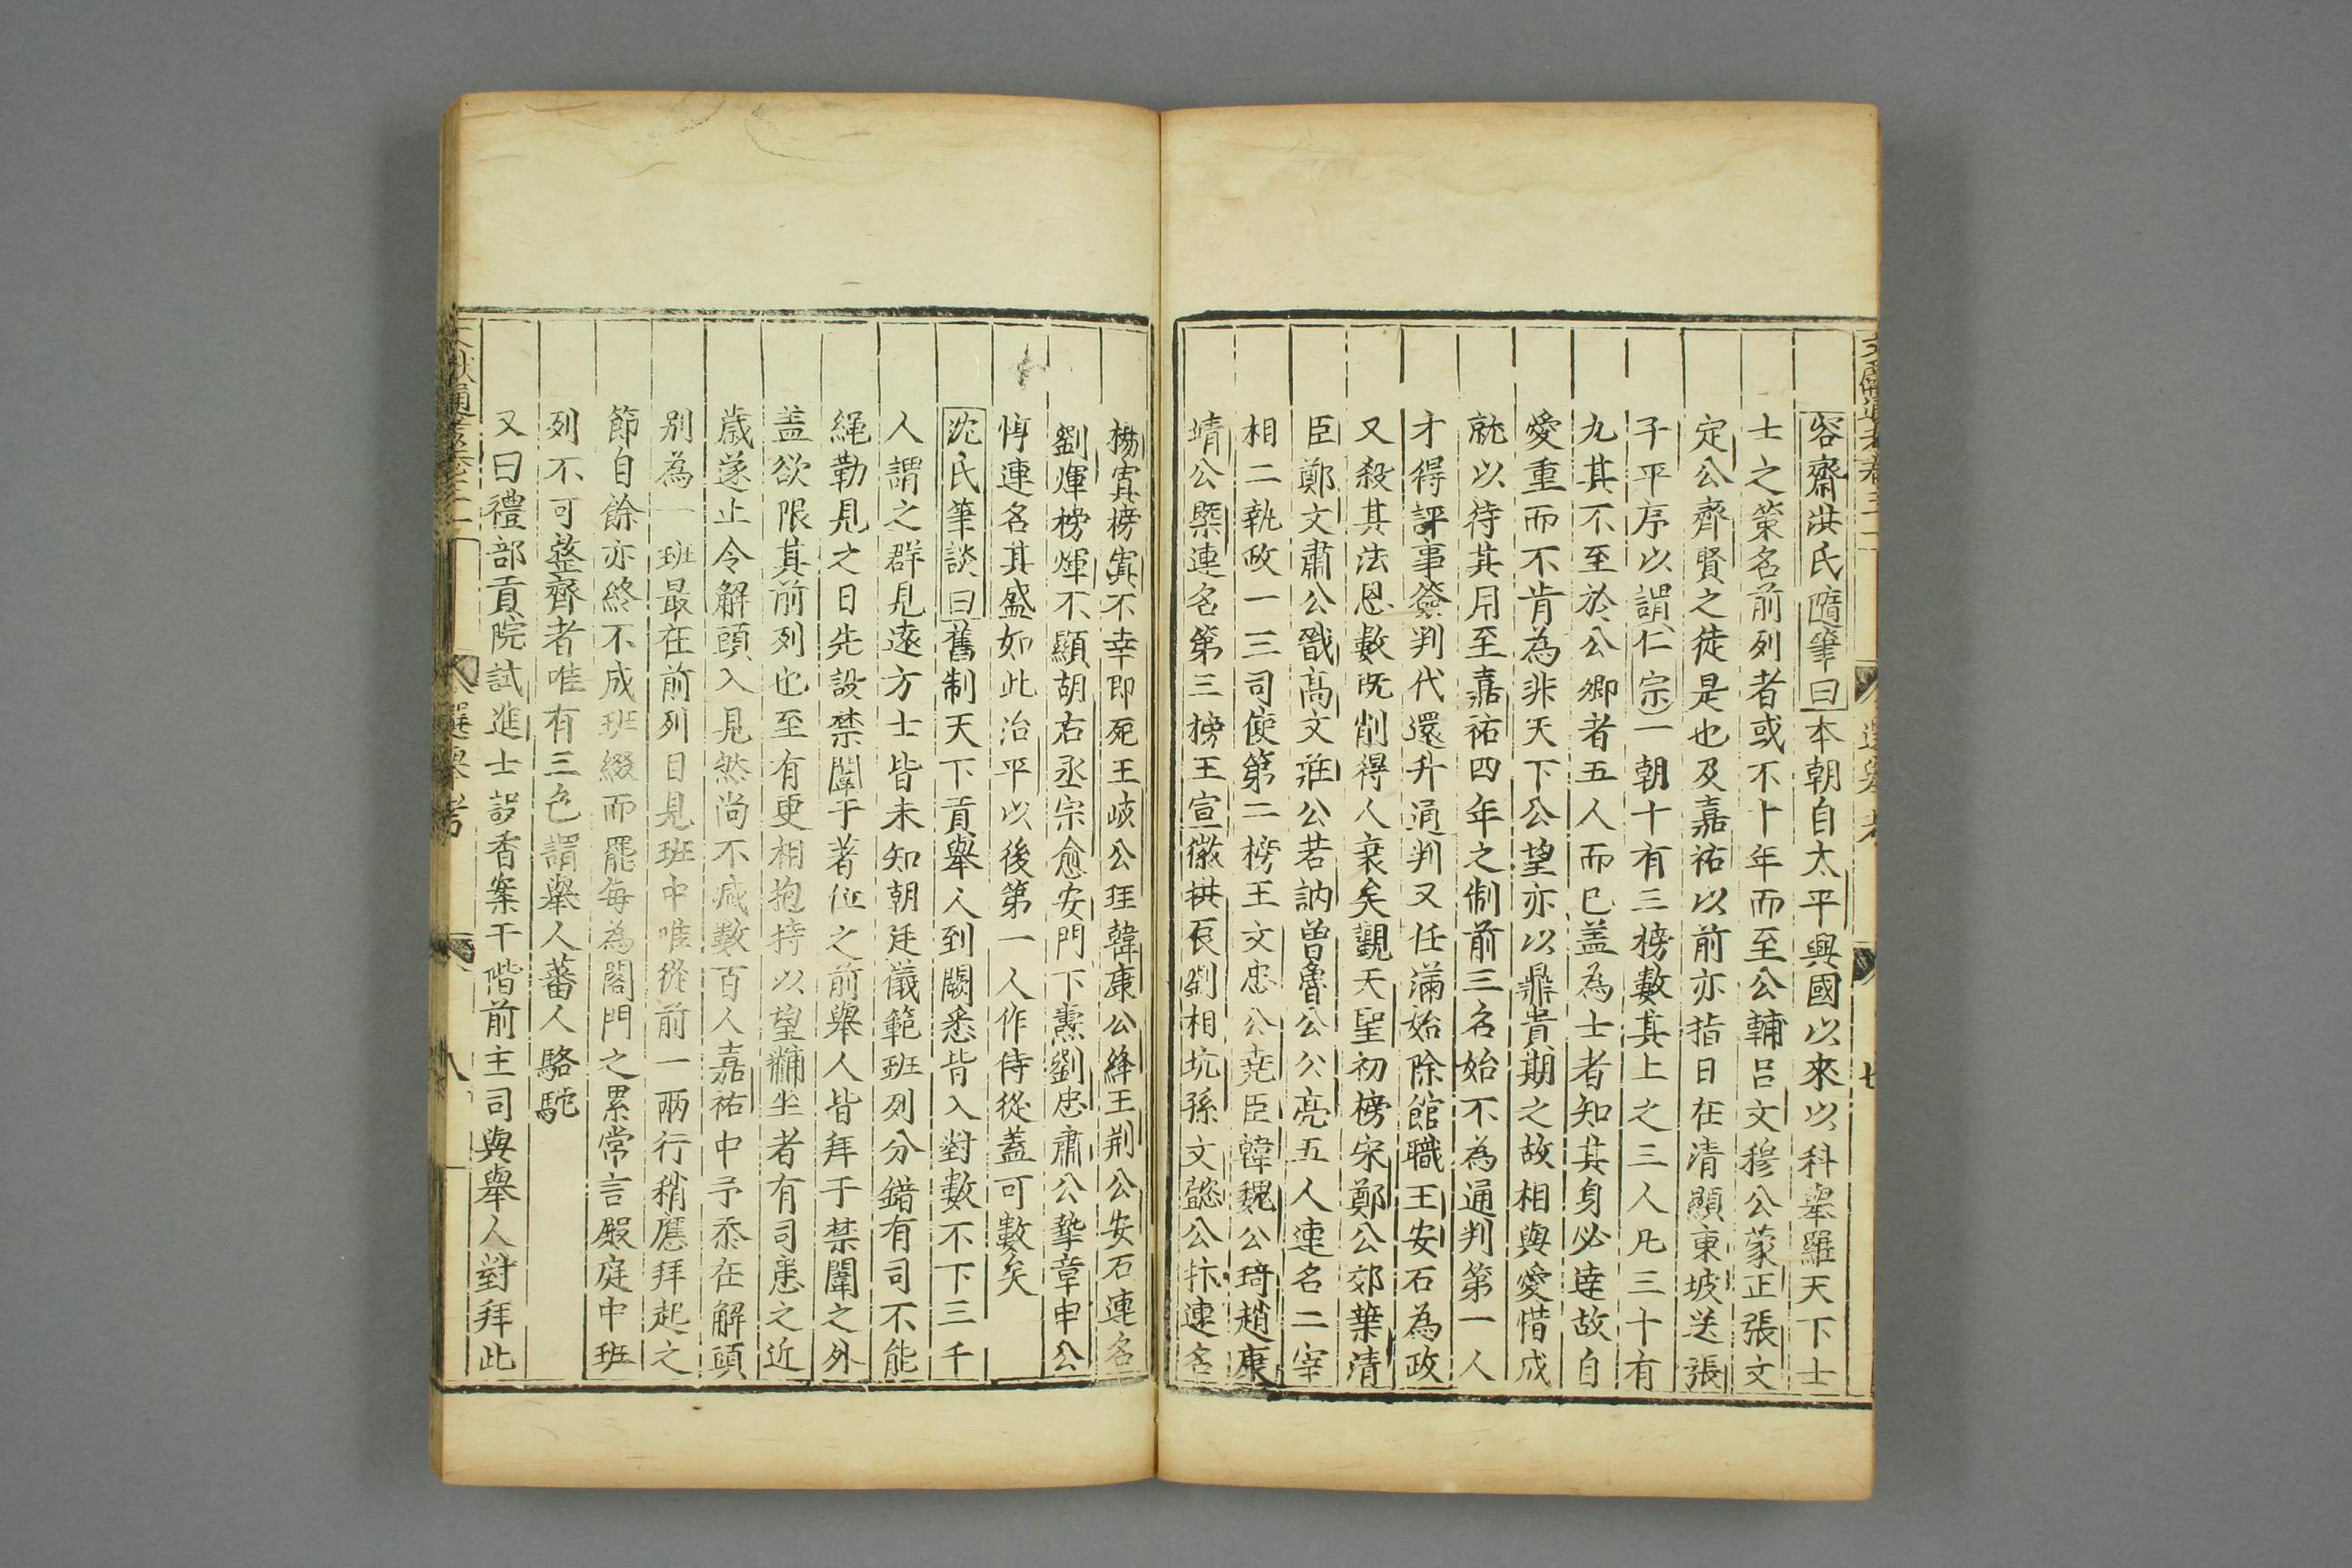 容齋洪氏隨筆曰本朝自太平興國以來以科舉羅天下士
士之策名前列者或不十年而至公輔呂文穆公蒙正張文
定公齊賢之徒是也及嘉祐以前亦指日在清顯東坡送張
子平序以謂仁宗一朝十有三榜數其上之三人凡三十有
九其不至於公卿者五人而已盖為士者知其身必達故自
愛重而不肯為非天下公望亦以鼎貴期之故相與愛惜成
就以待其用至嘉祐四年之制前三名始不為通判第一人
才得評事簽判代還升通判又任滿始除館職王安石為政
又殺其法恩數既削得人衰矣觀天聖初榜宋鄭公郊葉清
臣鄭文肅公戩高文莊公若訥曾魯公公亮五人連名二宰
相二執政一三司使第二榜王文忠公堯臣韓魏公琦趙康
靖公槩連名第三榜王宣徽拱辰劉相坑孫文懿公抃連名
楊寘榜寘不幸即死王岐公珪韓康公絳王荆公安石連名
劉煇榜煇不顯胡右丞宗愈安門下燾劉忠肅公摯章申公
惇連名其盛如此治平以後第一人作侍從蓋可數矣
沈氏筆談曰舊制天下貢舉人到闕悉皆入對數不下三千
人謂之群見遠方士皆未知朝廷儀範班列分錯有司不能
繩勒見之日先設禁闈于著位之前舉人皆拜于禁闈之外
盖欲限其前列也至有更相抱持以望黼坐者有司患之近
歲遂止令解頭入見然尚不減數百人嘉祐中予忝在解頭
別為一班最在前列目見班中唯從前一兩行稍應拜起之
節自餘亦終不成班綴而罷每為閤門之累常言殿庭中班
列不可整齊者唯有三色謂舉人蕃人駱駝
又曰禮部貢院試進士設香案于階前主司與舉人對拜此
文獻通考卷三十一
選舉考
八